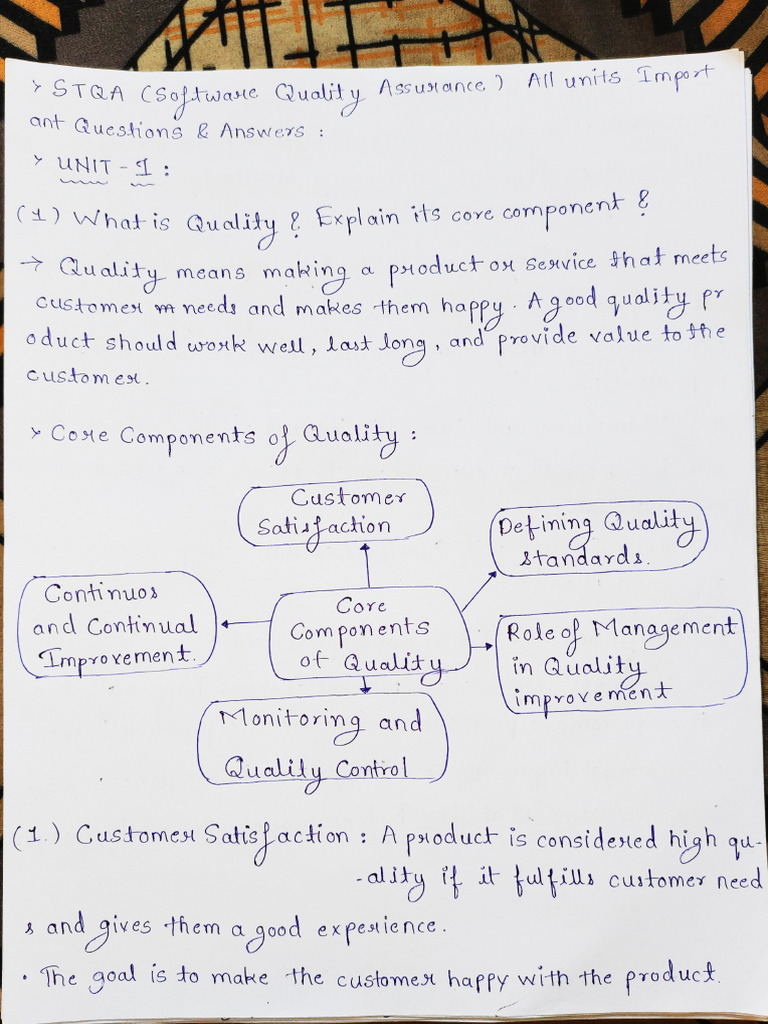 > STQA (Software Quality Assurance) All units Import
ant Questions & Answers :
> UNIT - 1 :
(1) What is Quality? Explain its core component?
→ Quality means making a product or service that meets
customer needs and makes them happy. A good quality pr
oduct should work well, last long, and provide value to the
customer.
> Core Components of Quality :
Customer
Satisfaction
Defining Quality
standards.
Continuos
and Continual
Improvement.
Core
Components
of Quality
Role of Management
in Quality
improvement
Monitoring and
Quality Control
(1.) Customer Satisfaction : A product is considered high qu-
-ality if it fulfills customer need
s and gives them a good experience.
• The goal is to make the customer happy with the product.